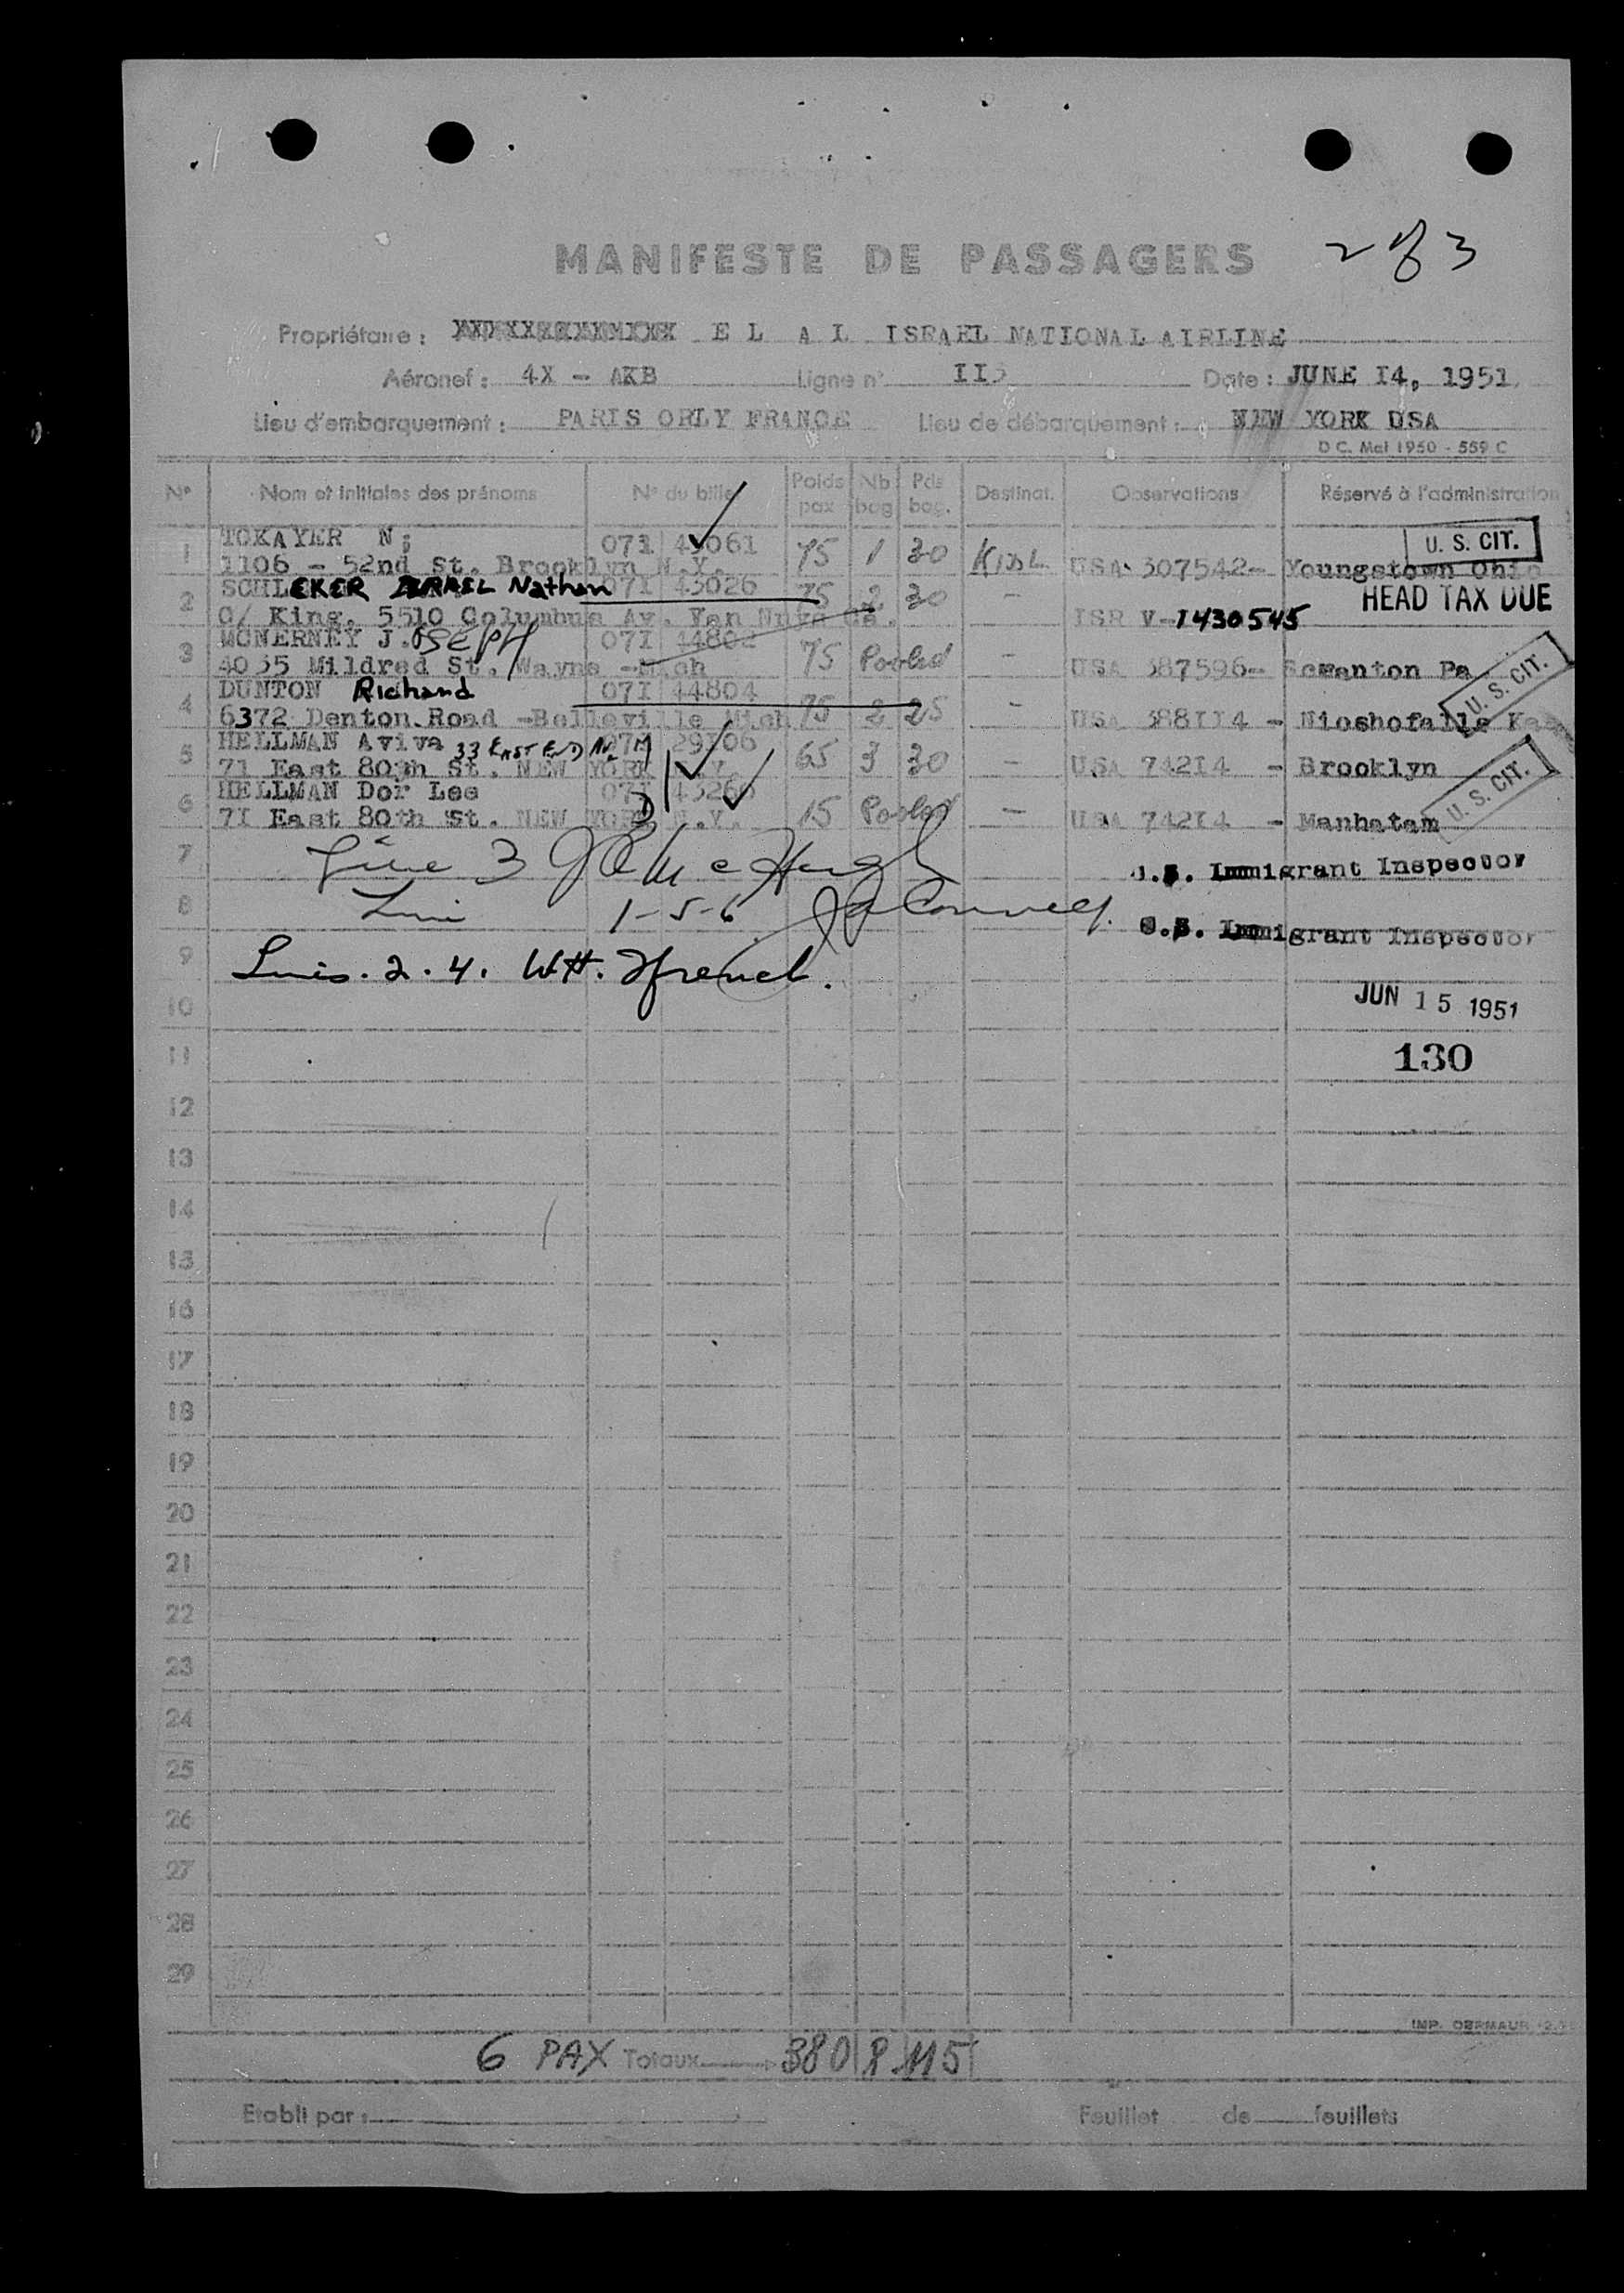 2 of 3
MANIFESTE DE PASSAGERS
Propriétaire : E L A L ISRAEL NATIONAL AIRLINE
Aéronef : 4X - AKB Ligne n° II3 Date : JUNE I4, 1951
Lieu d'embarquement : PARIS ORLY FRANCE Lieu de débarquement : NEW YORK USA
D C. Mai 1950 - 559 C
N° Nom et initiales des prénoms N° du billet Poids pax Nb bag Pds bag. Destinat. Observations Réservé à l'administration
U. S. CIT.
1 TOKAYER N; 071 43061 75 1 30
1106 - 52nd St. Brooklyn N.Y. USA 307542- Youngstown Ohio
2 SCHLEKER Nathan 07I 43026 75 2 30 -
HEAD TAX DUE
C/ King. 5510 Columbus Av. Van Nuys Ca. ISR V-1430545
3 MCNERNEY J.OSEPH 07I 44802 75 Pooled -
4035 Mildred St. Wayne - Mich USA 387596- Scranton Pa
U. S. CIT.
4 DUNTON Richard 07I 44804 75 2 25 -
6372 Denton Road -Belleville Mich USA 388II4 - Nioshofalls Kas
5 HELLMAN Aviva 33 EAST END AV 07I 29I06 65 3 30 -
71 East 80th St. NEW YORK N.Y. USA 742I4 - Brooklyn
U. S. CIT.
6 HELLMAN Dor Lee 07I 43266 15 Pooled -
7I East 80th St. NEW YORK N.Y. USA 742I4 - Manhatam
7 Line 3 U.S. Immigrant Inspector
8 1-5-6 U.S. Immigrant Inspector
9 Lines. 2. 4. W.H. French.
10 JUN 15 1951
11 130
12
13
14
15
16
17
18
19
20
21
22
23
24
25
26
27
28
29
IMP. DERMAUR
6 PAX Totaux 380 8 115
Etabli par : Feuillet de feuillets